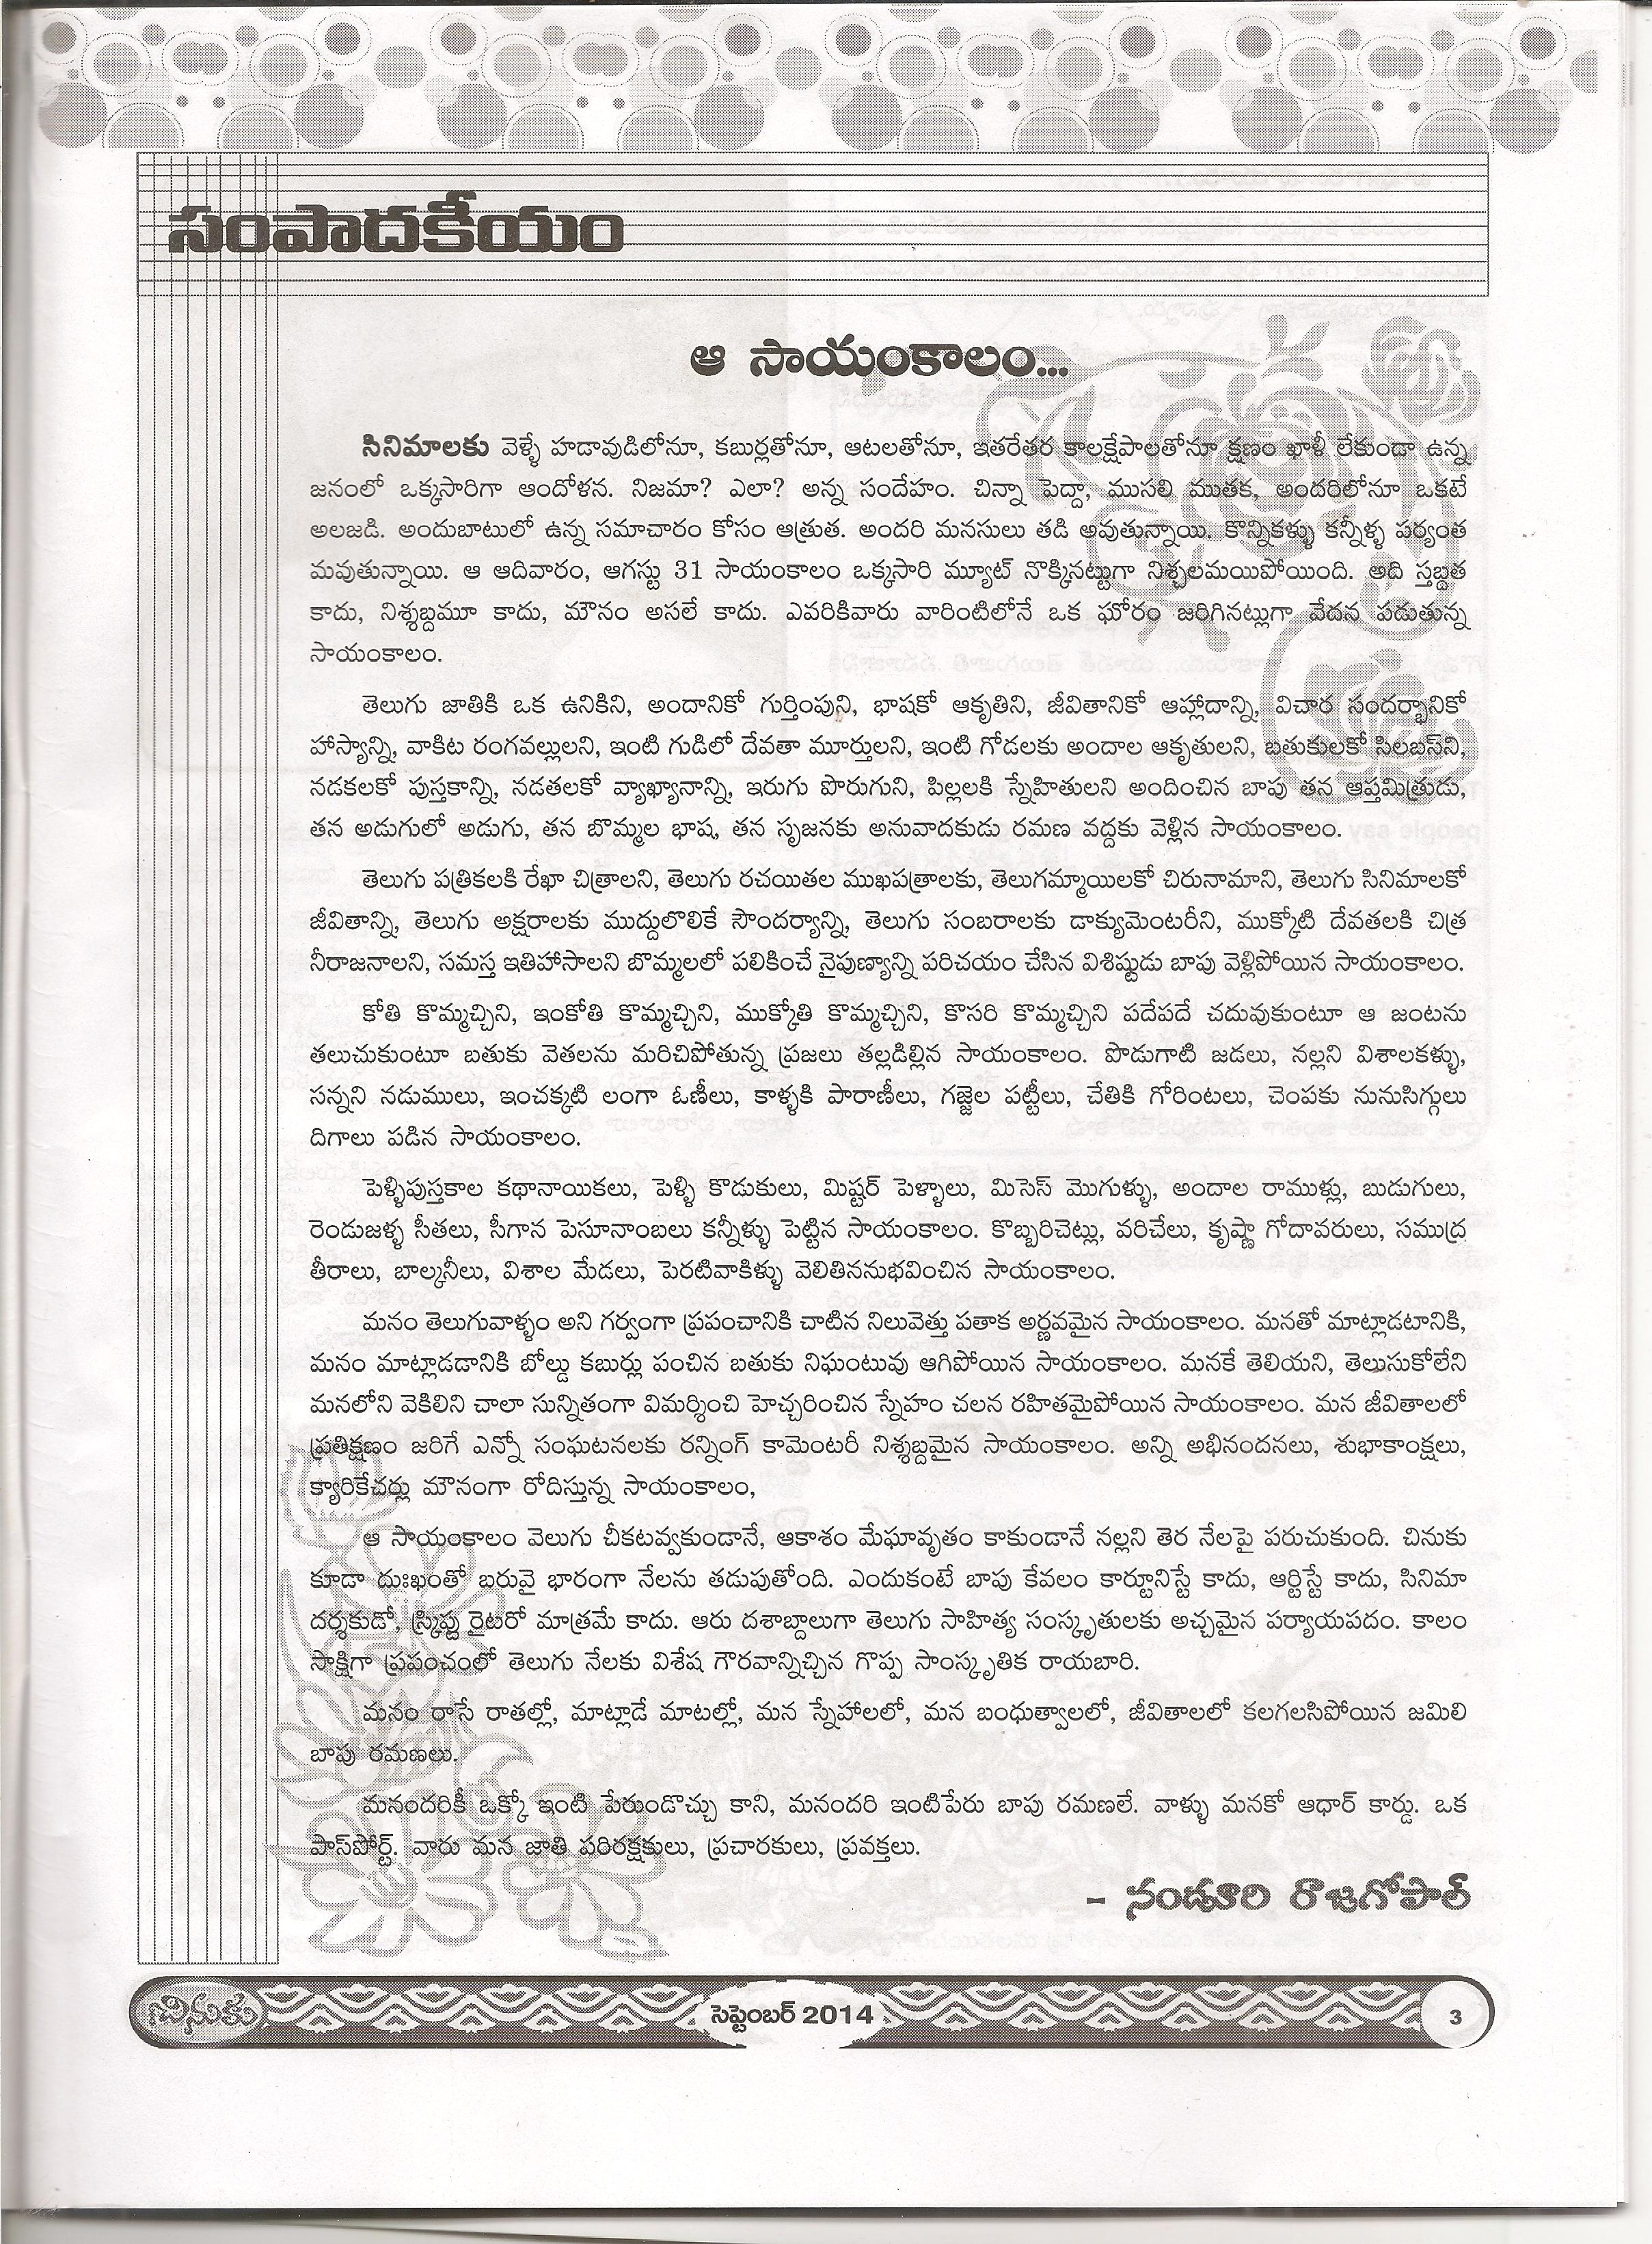 సంపాదకీయం
ఆ సాయంకాలం...
సినిమాలకు వెళ్ళే హడావుడిలోనూ, కబుర్లతోనూ, ఆటలతోనూ, ఇతరేతర కాలక్షేపాలతోనూ క్షణం ఖాళీ లేకుండా ఉన్న
జనంలో ఒక్కసారిగా ఆందోళన. నిజమా? ఎలా? అన్న సందేహం. చిన్నా పెద్దా, ముసలి ముతక, అందరిలోనూ ఒకటే
అలజడి. అందుబాటులో ఉన్న సమాచారం కోసం ఆత్రుత. అందరి మనసులు తడి అవుతున్నాయి. కొన్నికళ్ళు కన్నీళ్ళ పర్యంత
మవుతున్నాయి. ఆ ఆదివారం, ఆగస్టు 31 సాయంకాలం ఒక్కసారి మ్యూట్ నొక్కినట్టుగా నిశ్చలమయిపోయింది. అది స్తబ్దత
కాదు, నిశ్శబ్దమూ కాదు, మౌనం అసలే కాదు. ఎవరికివారు వారింటిలోనే ఒక ఘోరం జరిగినట్లుగా వేదన పడుతున్న
సాయంకాలం.
తెలుగు జాతికి ఒక ఉనికిని, అందానికో గుర్తింపుని, భాషకో ఆకృతిని, జీవితానికో ఆహ్లాదాన్ని, విచార సందర్భానికో
హాస్యాన్ని, వాకిట రంగవల్లులని, ఇంటి గుడిలో దేవతా మూర్తులని, ఇంటి గోడలకు అందాల ఆకృతులని, బతుకులకో సిలబస్‌ని,
నడకలకో పుస్తకాన్ని, నడతలకో వ్యాఖ్యానాన్ని, ఇరుగు పొరుగుని, పిల్లలకి స్నేహితులని అందించిన బాపు తన ఆప్తమిత్రుడు,
తన అడుగులో అడుగు, తన బొమ్మల భాష, తన సృజనకు అనువాదకుడు రమణ వద్దకు వెళ్లిన సాయంకాలం.
తెలుగు పత్రికలకి రేఖా చిత్రాలని, తెలుగు రచయితల ముఖపత్రాలకు, తెలుగమ్మాయిలకో చిరునామాని, తెలుగు సినిమాలకో
జీవితాన్ని, తెలుగు అక్షరాలకు ముద్దులొలికే సౌందర్యాన్ని, తెలుగు సంబరాలకు డాక్యుమెంటరీని, ముక్కోటి దేవతలకి చిత్ర
నీరాజనాలని, సమస్త ఇతిహాసాలని బొమ్మలలో పలికించే నైపుణ్యాన్ని పరిచయం చేసిన విశిష్టుడు బాపు వెళ్లిపోయిన సాయంకాలం.
కోతి కొమ్మచ్చిని, ఇంకోతి కొమ్మచ్చిని, ముక్కోతి కొమ్మచ్చిని, కొసరి కొమ్మచ్చిని పదేపదే చదువుకుంటూ ఆ జంటను
తలుచుకుంటూ బతుకు వెతలను మరిచిపోతున్న ప్రజలు తల్లడిల్లిన సాయంకాలం. పొడుగాటి జడలు, నల్లని విశాలకళ్ళు,
సన్నని నడుములు, ఇంచక్కటి లంగా ఓణీలు, కాళ్ళకి పారాణీలు, గజ్జెల పట్టీలు, చేతికి గోరింటలు, చెంపకు నునుసిగ్గులు
దిగాలు పడిన సాయంకాలం.
పెళ్ళిపుస్తకాల కథానాయికలు, పెళ్ళి కొడుకులు, మిష్టర్ పెళ్ళాలు, మిసెస్ మొగుళ్ళు, అందాల రాముళ్లు, బుడుగులు,
రెండుజళ్ళ సీతలు, సీగాన పెసూనాంబలు కన్నీళ్ళు పెట్టిన సాయంకాలం. కొబ్బరిచెట్లు, వరిచేలు, కృష్ణా గోదావరులు, సముద్ర
తీరాలు, బాల్కనీలు, విశాల మేడలు, పెరటివాకిళ్ళు వెలితిననుభవించిన సాయంకాలం.
మనం తెలుగువాళ్ళం అని గర్వంగా ప్రపంచానికి చాటిన నిలువెత్తు పతాక అర్ణవమైన సాయంకాలం. మనతో మాట్లాడటానికి,
మనం మాట్లాడడానికి బోల్డు కబుర్లు పంచిన బతుకు నిఘంటువు ఆగిపోయిన సాయంకాలం. మనకే తెలియని, తెలుసుకోలేని
మనలోని వెకిలిని చాలా సున్నితంగా విమర్శించి హెచ్చరించిన స్నేహం చలన రహితమైపోయిన సాయంకాలం. మన జీవితాలలో
ప్రతిక్షణం జరిగే ఎన్నో సంఘటనలకు రన్నింగ్ కామెంటరీ నిశ్శబ్దమైన సాయంకాలం. అన్ని అభినందనలు, శుభాకాంక్షలు,
క్యారికేచర్లు మౌనంగా రోదిస్తున్న సాయంకాలం,
ఆ సాయంకాలం వెలుగు చీకటవ్వకుండానే, ఆకాశం మేఘావృతం కాకుండానే నల్లని తెర నేలపై పరుచుకుంది. చినుకు
కూడా దుఃఖంతో బరువై భారంగా నేలను తడుపుతోంది. ఎందుకంటే బాపు కేవలం కార్టూనిస్టే కాదు, ఆర్టిస్టే కాదు, సినిమా
దర్శకుడో, స్క్రిప్టు రైటరో మాత్రమే కాదు. ఆరు దశాబ్దాలుగా తెలుగు సాహిత్య సంస్కృతులకు అచ్చమైన పర్యాయపదం. కాలం
సాక్షిగా ప్రపంచంలో తెలుగు నేలకు విశేష గౌరవాన్నిచ్చిన గొప్ప సాంస్కృతిక రాయబారి.
మనం రాసే రాతల్లో, మాట్లాడే మాటల్లో, మన స్నేహాలలో, మన బంధుత్వాలలో, జీవితాలలో కలగలసిపోయిన జమిలి
బాపు రమణలు.
మనందరికీ ఒక్కో ఇంటి పేరుండొచ్చు కాని, మనందరి ఇంటిపేరు బాపు రమణలే. వాళ్ళు మనకో ఆధార్ కార్డు. ఒక
పాస్‌పోర్ట్. వారు మన జాతి పరిరక్షకులు, ప్రచారకులు, ప్రవక్తలు.
– నండూరి రాజగోపాల్
చినుకు సెప్టెంబర్ 2014 3